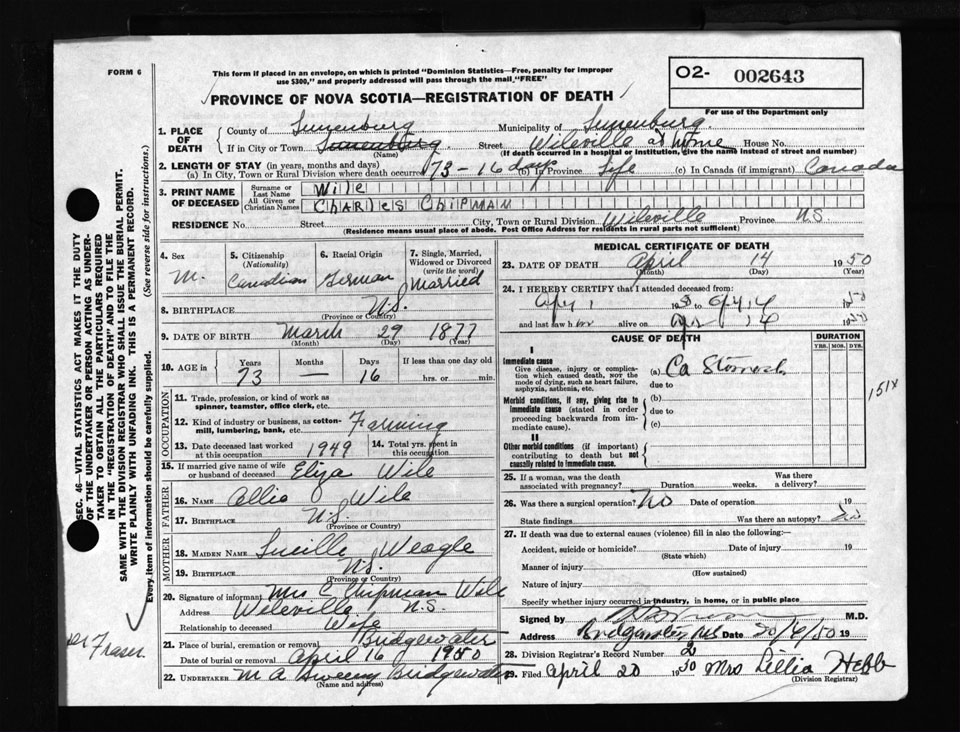 FORM 6
This form if placed in an envelope, on which is printed "Dominion Statistics—Free, penalty for improper
use $300," and properly addressed will pass through the mail, "FREE"
O2- 002643
For use of the Department only
PROVINCE OF NOVA SCOTIA—REGISTRATION OF DEATH
1. PLACE OF DEATH County of Lunenburg Municipality of Lunenburg
If in City or Town Lunenburg Street Wileville at Home House No.
(Name) (If death occurred in a hospital or institution, give the name instead of street and number)
2. LENGTH OF STAY (in years, months and days)
(a) In City, Town or Rural Division where death occurred 73 - 16 days (b) In Province Life (c) In Canada (if immigrant) Canada
3. PRINT NAME OF DECEASED Surname or Last Name Wile
All Given or Christian Names CHARLES CHIPMAN
RESIDENCE No. Street City, Town or Rural Division Wileville Province N.S.
(Residence means usual place of abode. Post Office Address for residents in rural parts not sufficient)
4. Sex M.
5. Citizenship (Nationality) Canadian
6. Racial Origin German
7. Single, Married, Widowed or Divorced (write the word) Married
8. BIRTHPLACE N.S.
(Province or Country)
9. DATE OF BIRTH March 29 1877
(Month) (Day) (Year)
10. AGE in Years Months Days If less than one day old
73 — 16 hrs. or min.
OCCUPATION
11. Trade, profession, or kind of work as
spinner, teamster, office clerk, etc.
12. Kind of industry or business, as cotton-
mill, lumbering, bank, etc. Farming
13. Date deceased last worked at this occupation 1949
14. Total yrs. spent in this occupation
15. If married give name of wife or husband of deceased Eliza Wile
FATHER
16. NAME Allio Wile
17. BIRTHPLACE N.S.
(Province or Country)
MOTHER
18. MAIDEN NAME Lucille Weagle
19. BIRTHPLACE N.S.
(Province or Country)
20. Signature of informant Mrs C Chipman Wile
Address Wileville N.S.
Relationship to deceased Wife
21. Place of burial, cremation or removal Bridgewater
Date of burial or removal April 16 1950
22. UNDERTAKER M A Sweeny Bridgewater
(Name and address)
MEDICAL CERTIFICATE OF DEATH
23. DATE OF DEATH April 14 1950
(Month) (Day) (Year)
24. I HEREBY CERTIFY that I attended deceased from:
and last saw h im alive on
CAUSE OF DEATH
DURATION
YRS. MOS. DYS.
I
Immediate cause
Give disease, injury or complica-
tion which caused death, NOT the
mode of dying, such as heart failure,
asphyxia, asthenia, etc.
(a) Ca Stomach
due to
Morbid conditions, if any, giving rise to
immediate cause (stated in order
proceeding backwards from im-
mediate cause).
(b)
due to
(c)
II
Other morbid conditions (if important)
contributing to death but not
causally related to immediate cause.
151X
25. If a woman, was the death associated with pregnancy? Duration weeks. Was there a delivery?
26. Was there a surgical operation? No Date of operation 19
State findings Was there an autopsy? No
27. If death was due to external causes (violence) fill in also the following:—
Accident, suicide or homicide? Date of injury 19
(State which)
Manner of injury
(How sustained)
Nature of injury
Specify whether injury occurred in industry, in home, or in public place
Signed by M.D.
Address Bridgewater NS Date 20/4/50 19
28. Division Registrar's Record Number 2
29. Filed April 20 1950 Mrs Lillia Hebb
(Division Registrar)
SEC. 46—VITAL STATISTICS ACT MAKES IT THE DUTY
OF THE UNDERTAKER OR PERSON ACTING AS UNDER-
TAKER TO OBTAIN ALL THE PARTICULARS REQUIRED
IN THE "REGISTRATION OF DEATH" AND TO FILE THE
SAME WITH THE DIVISION REGISTRAR WHO SHALL ISSUE THE BURIAL PERMIT.
WRITE PLAINLY WITH UNFADING INK. THIS IS A PERMANENT RECORD.
Every item of information should be carefully supplied. (See reverse side for instructions.)
Dr Fraser.